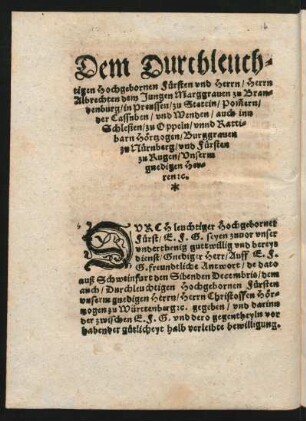 Dem Durchleuch-
tigen Hochgebornen Fürsten vnd Herrn / Herrn
Albrechten dem Jungen Marggrauen zu Bran-
denburg / in Preussen / zu Stettin / Pomern /
der Cassuben / vnd Wenden / auch inn
Schlesien / zu Oppeln / vnnd Ratti-
barn Hörtzogen / Burggrauen
zu Nürnberg / vnd Fürsten
zu Rugen / Vnserm
gnedigen Her-
ren ꝛc.
*
DVRCHleuchtiger Hochgeborner
Fürst / E. F. G. seyen zuuor vnser
vnderthenig guttwillig vnd bereyt
dienst / Gnediger Herr / Auff E. F.
G. freundtliche Antwort / de dato
auß Schweinfurt den Sibenden Decembris / dem
auch / Durchleuchtigen Hochgebornen Fürsten
vnserm gnedigen Herrn / Herrn Christoffen Hör-
tzogen zu Würtenberg ꝛc. gegeben / vnd darinn
der zwischen E. F. G. vnd dero gegentheyln vor
habender gütlicheyt halb verleibte bewilligung.